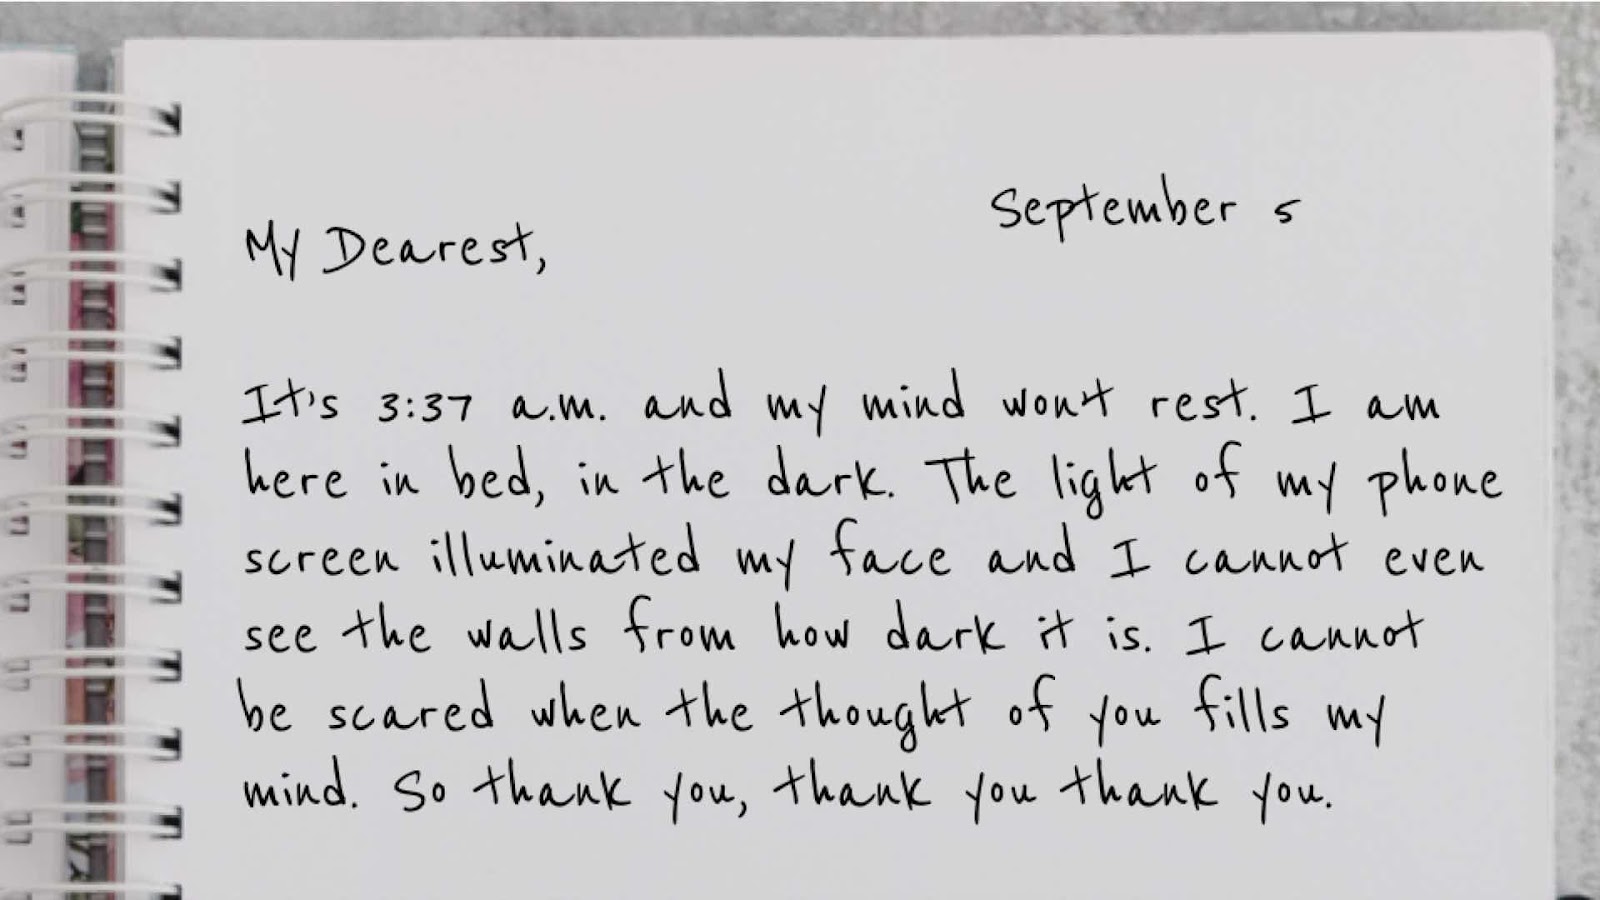 September 5
My Dearest,
It's 3:37 a.m. and my mind won't rest. I am
here in bed, in the dark. The light of my phone
screen illuminated my face and I cannot even
see the walls from how dark it is. I cannot
be scared when the thought of you fills my
mind. So thank you, thank you thank you.